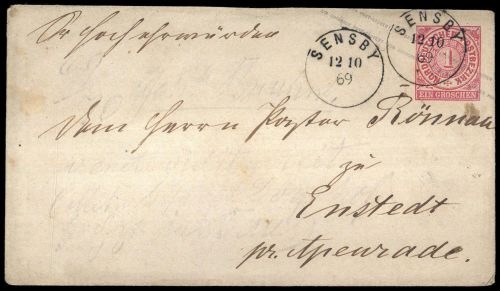 Sr Hochehrwürden
SENSBY
12 10
69
SENSBY
12 10
69
1
EIN GROSCHEN
dem Herrn Pastor Rönnau
zu
Enstedt
pr. Apenrade.